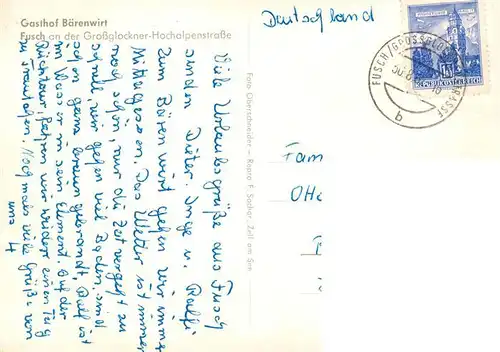 Gasthof Bärenwirt
Fusch an der Großglockner-Hochalpenstraße
Viele Urlaubsgrüße aus Fusch
senden Dieter, Inge u. Ralfi
Zum Bären wirt gehen wir immer
Mittagessen. Das Wetter ist immer
noch schön, nur die Zeit vergeht zu
schnell, wir gehen viel Baden, sind
schon ganz braun gebrannt, Ralf ist
im Wasser in sein Element. Auf der
Rücktour fahren wir wieder einen Tag
zu Nochmals viele Grüße von
uns 4
Foto Oberschneider – Repro F. Sochor, Zell am See
Deutschland
Fam
FUSCH/GROSSGLO STRASSE
b
REPUBLIK ÖSTERREICH